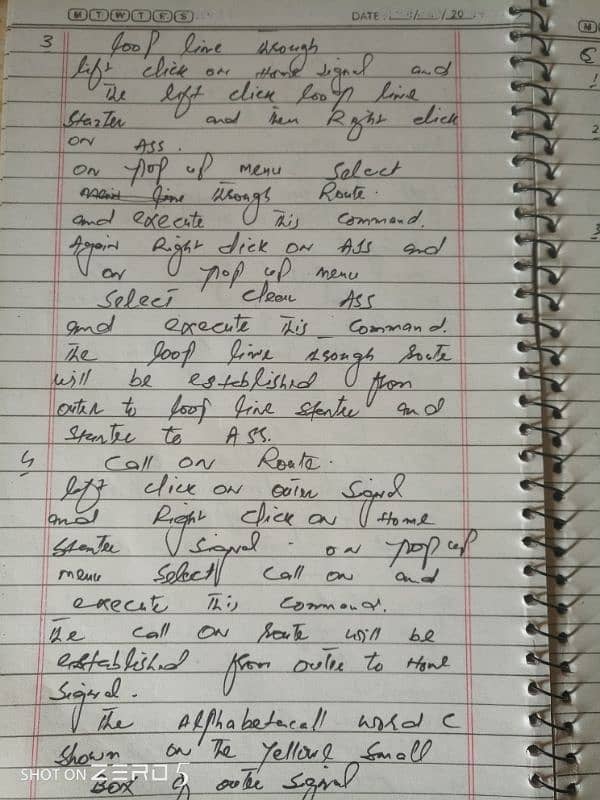 M T W T F S DATE: / /20
3 loop line through
left click on Home signal and
The left click loop line
Starter and then Right click
on ASS.
on pop up menu Select
main line through Route.
and execute This Command.
Again Right click on ASS and
on pop up menu
Select clear ASS
and execute This Command.
The loop line through route
will be established from
outer to loop line starter and
Starter to ASS.
4 Call on Route.
left click on outer Signal
and Right click on Home
Starter Signal. on pop up
menu Select Call on and
execute This Command.
The Call on route will be
established from outer to Home
Signal.
The Alphabetacall word C
Shown on The yellow Small
Box of outer Signal
SHOT ON ZERO 5